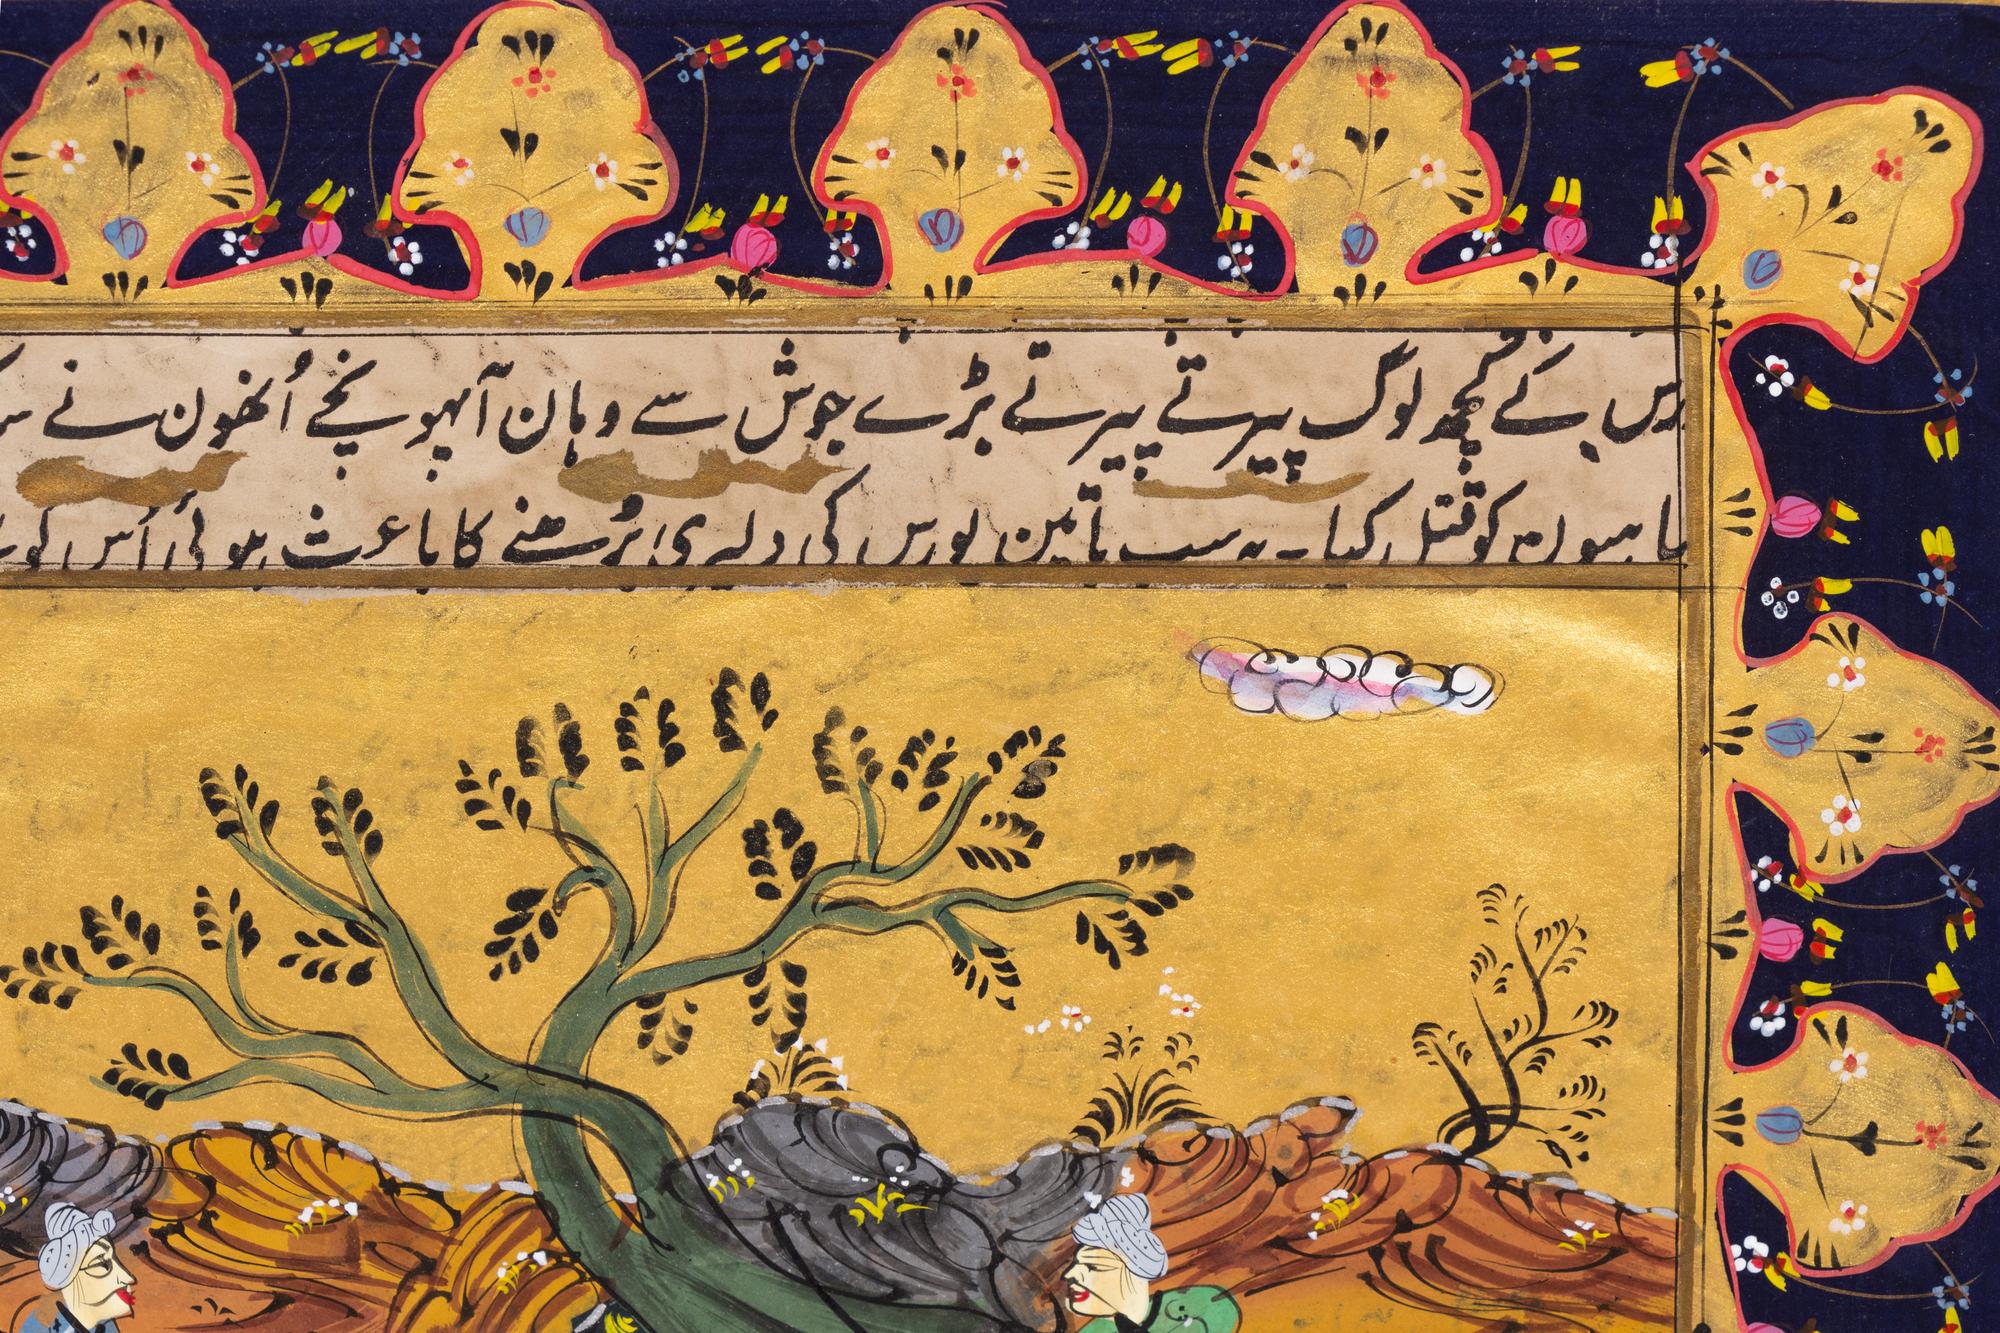 رس کے کچھ لوگ پیرتے پیرتے بڑے جوش سے وہان آپہونچے اُنھون نے
ہیون کو قتل کیا ۔ یہ سب باتین پورس کی دلیری بڑھنے کا باعث ہوئی اُس کو